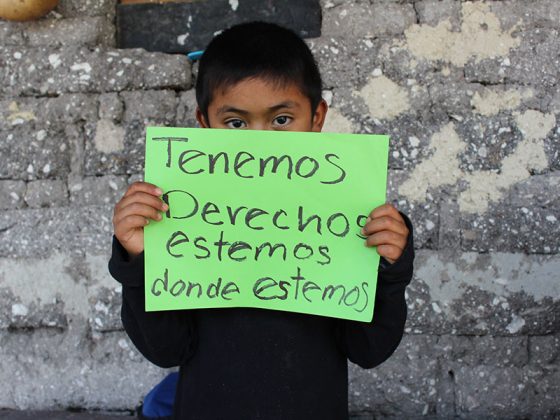 Tenemos
Derechos
estemos
donde estemos